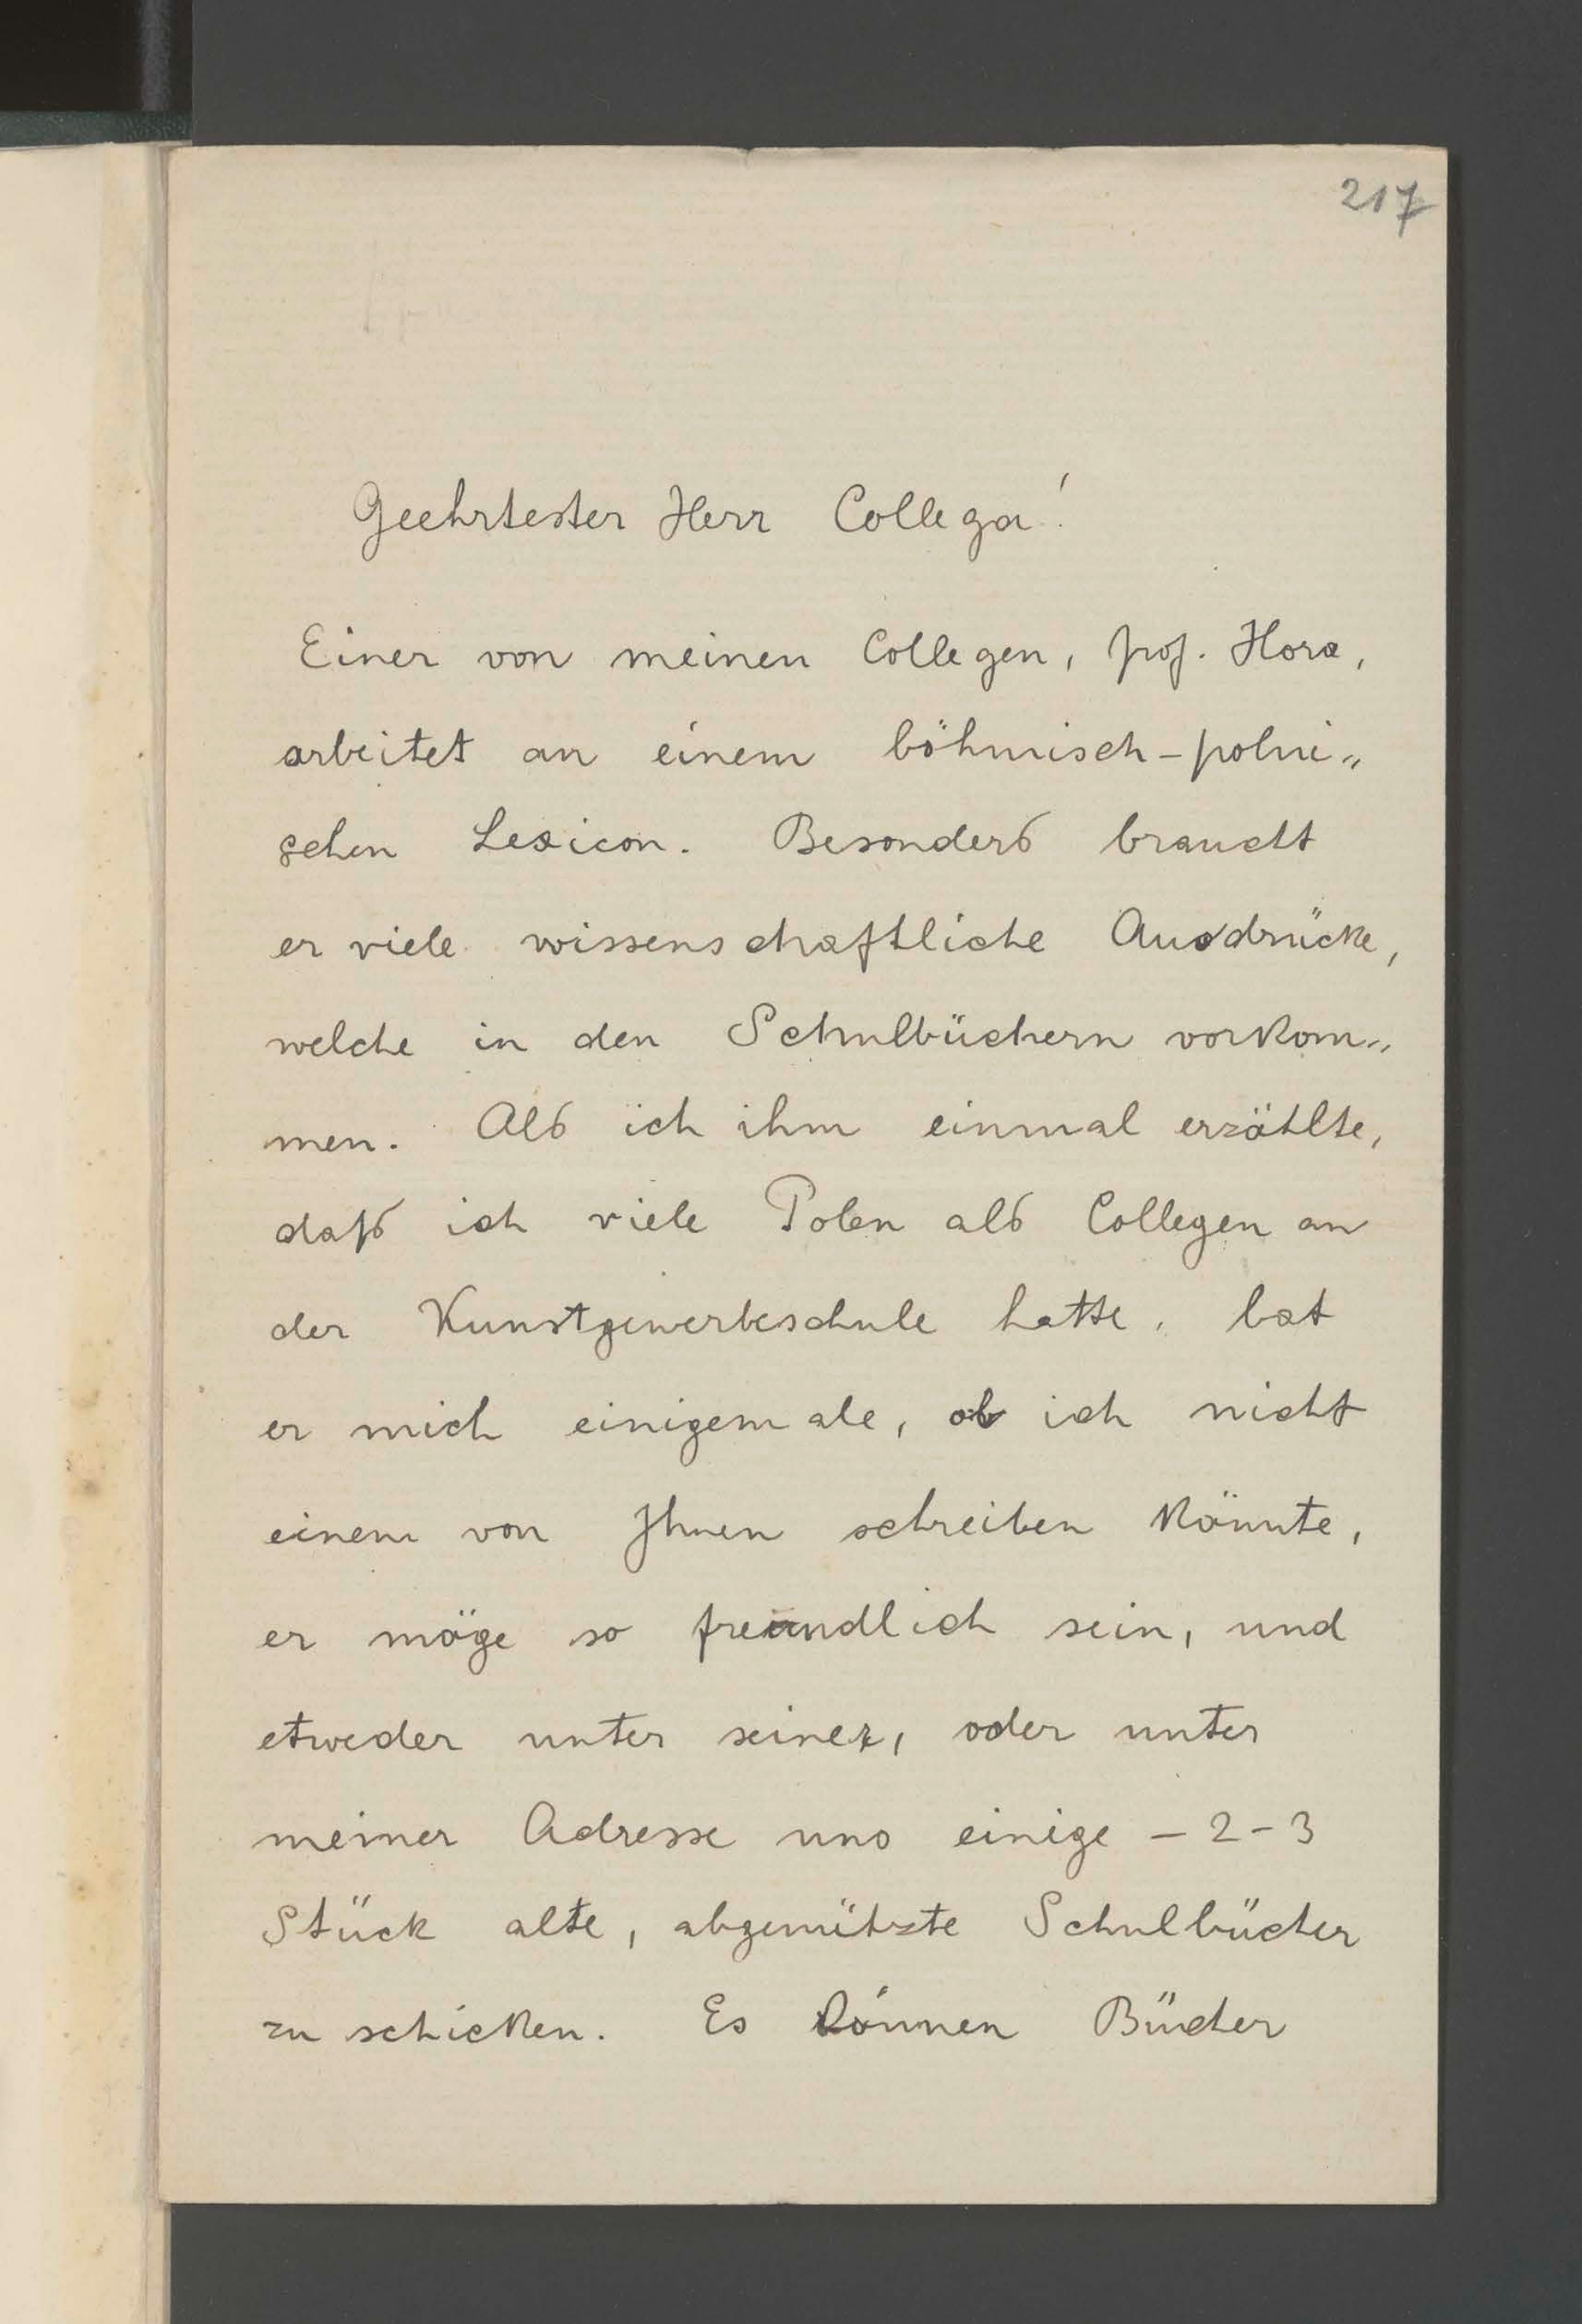 217
Geehrtester Herr Collega!
Einer von meinen Collegen, prof. Hora,
arbeitet an einem böhmisch-polni„
schen Lexicon. Besonders braucht
er viele wissenschaftliche Ausdrücke,
welche in den Schulbüchern vorkom„
men. Als ich ihm einmal erzählte,
daß ich viele Polen als Collegen an
der Kunstgewerbeschule hatte, bat
er mich einigemale, ob ich nicht
einem von Ihnen schreiben könnte,
er möge so freundlich sein, und
etweder unter seiner, oder unter
meiner Adresse uns einige – 2-3
Stück alte, abgenützte Schulbücher
zu schicken. Es können Bücher